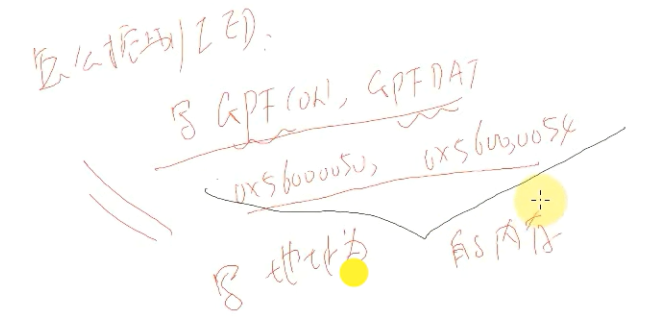 怎么控制LED.
写 GPFCON, GPFDAT
0x56000050, 0x56000054
写 地址为 的内存